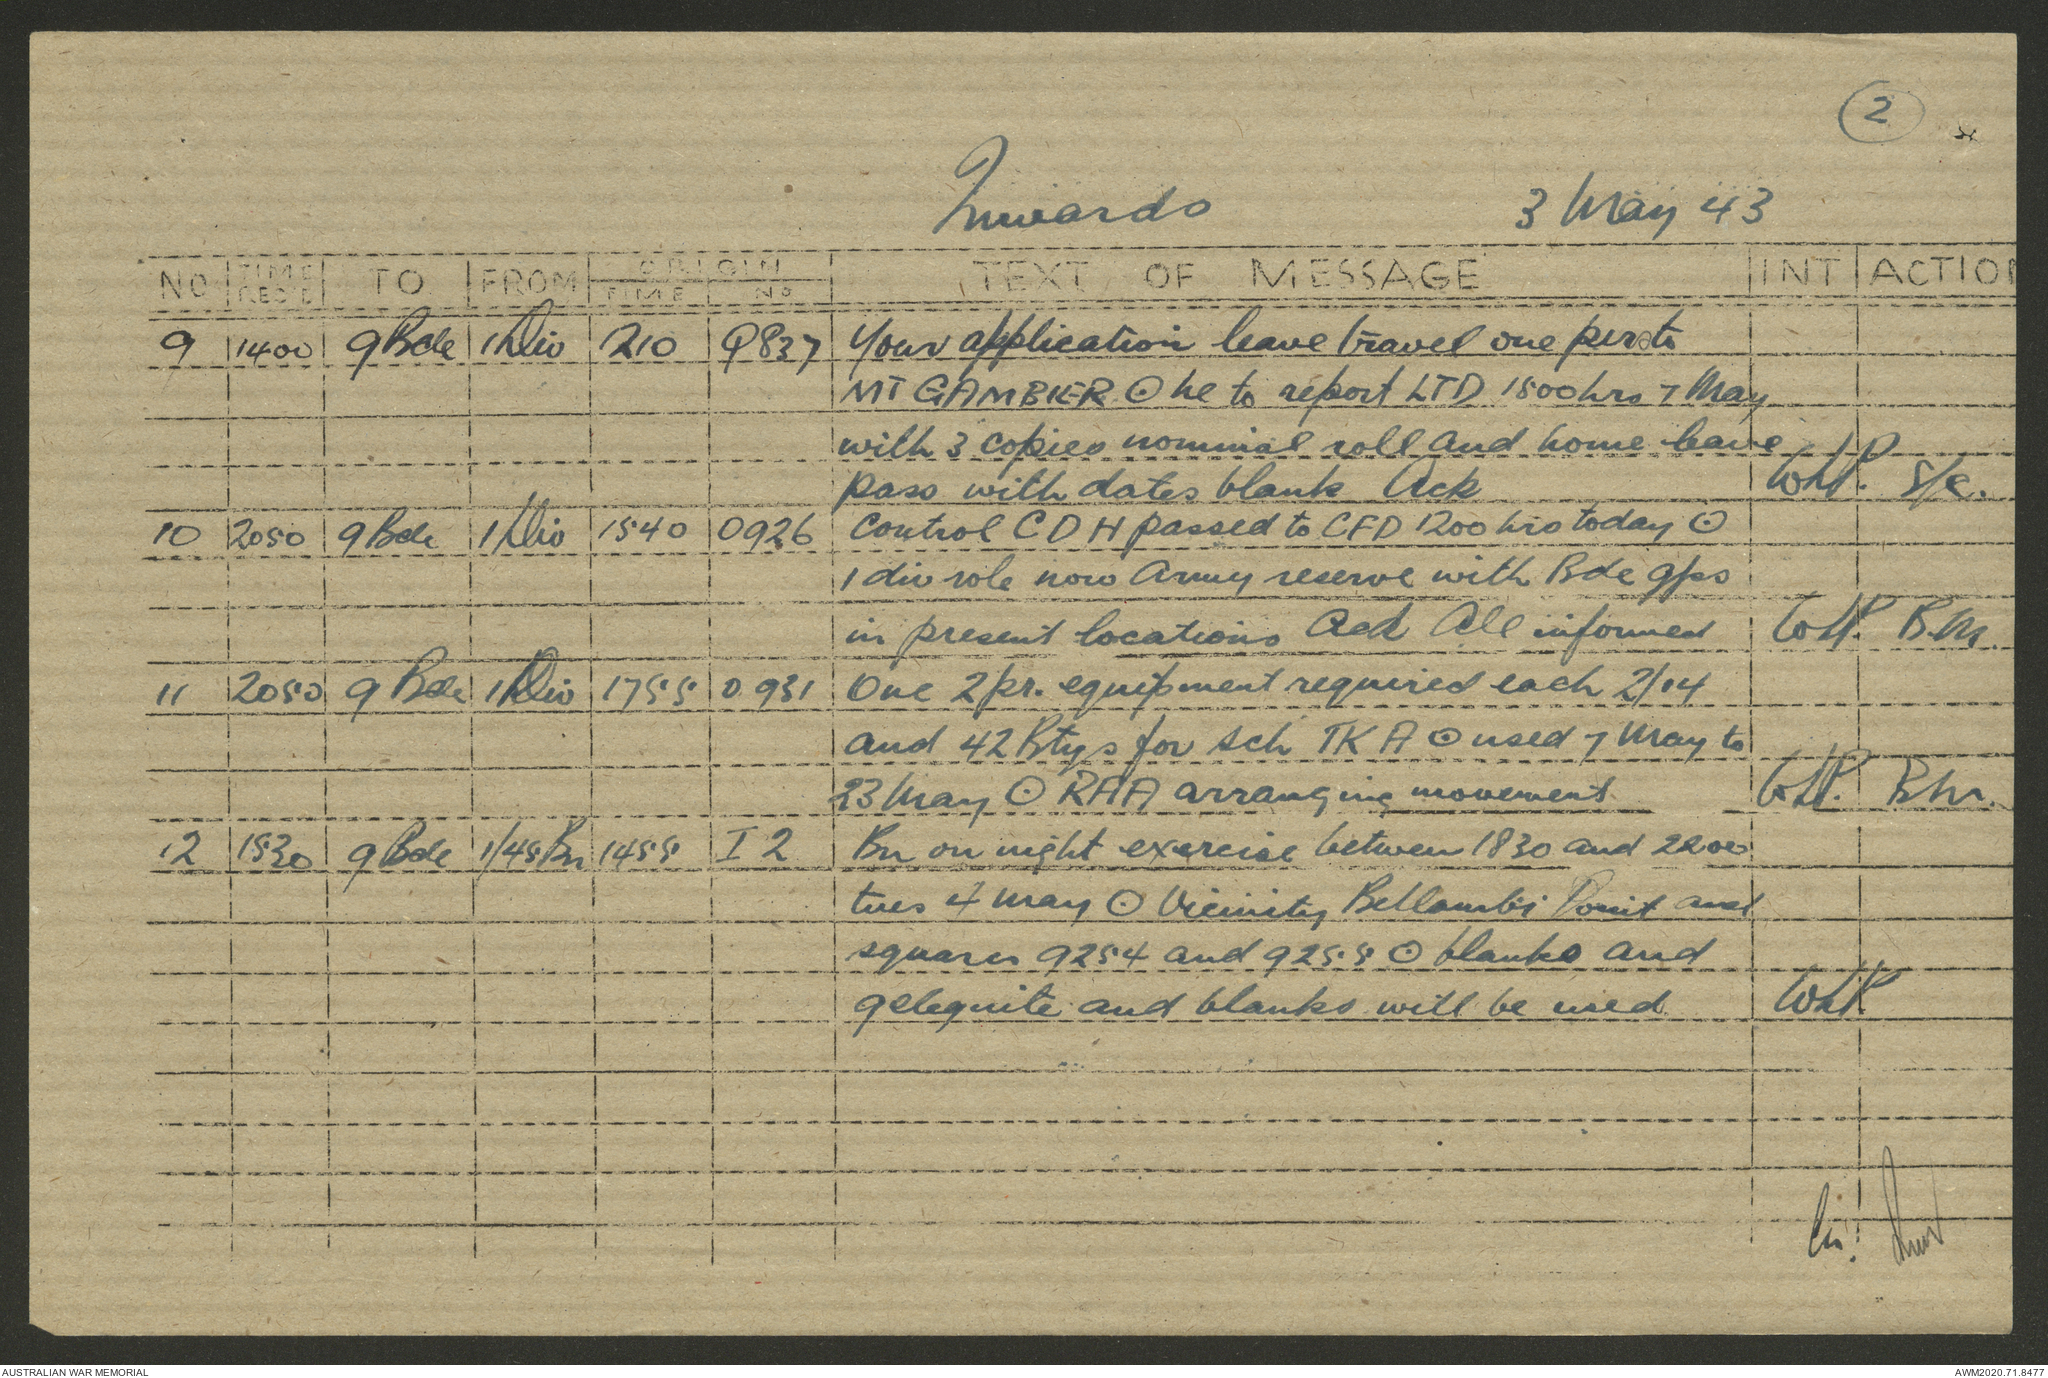 2
Inwards 3 May 43
NO TIME REC'D TO FROM ORIGIN TIME NO TEXT OF MESSAGE INT ACTION
9 1400 9 Bde 1 Div 210 Q837 Your application leave travel one pers to
MT GAMBIER ⊙ he to report LTD 1500 hrs 7 May
with 3 copies nominal roll and home leave
pass with dates blank Ack WHP. S/C.
10 2050 9 Bde 1 Div 1540 0926 Control CDH passed to CFD 1200 hrs today ⊙
1 div role now Army reserve with Bde gps
in present locations Ack All informed WHP. B.M.
11 2050 9 Bde 1 Div 1755 0931 One 2 pr. equipment required each 2/14
and 42 Btys for sch TKA ⊙ used 7 May to
23 May ⊙ RAA arranging movement WHP. B.M.
12 1530 9 Bde 1/45 Bn 1455 I 2 Bn on night exercise between 1830 and 2200
tues 4 May ⊙ Vicinity Bellambi Point and
squares 9254 and 9255 ⊙ blanks and
gelegnite and blanks will be used WHP
AUSTRALIAN WAR MEMORIAL AWM2020.71.8477